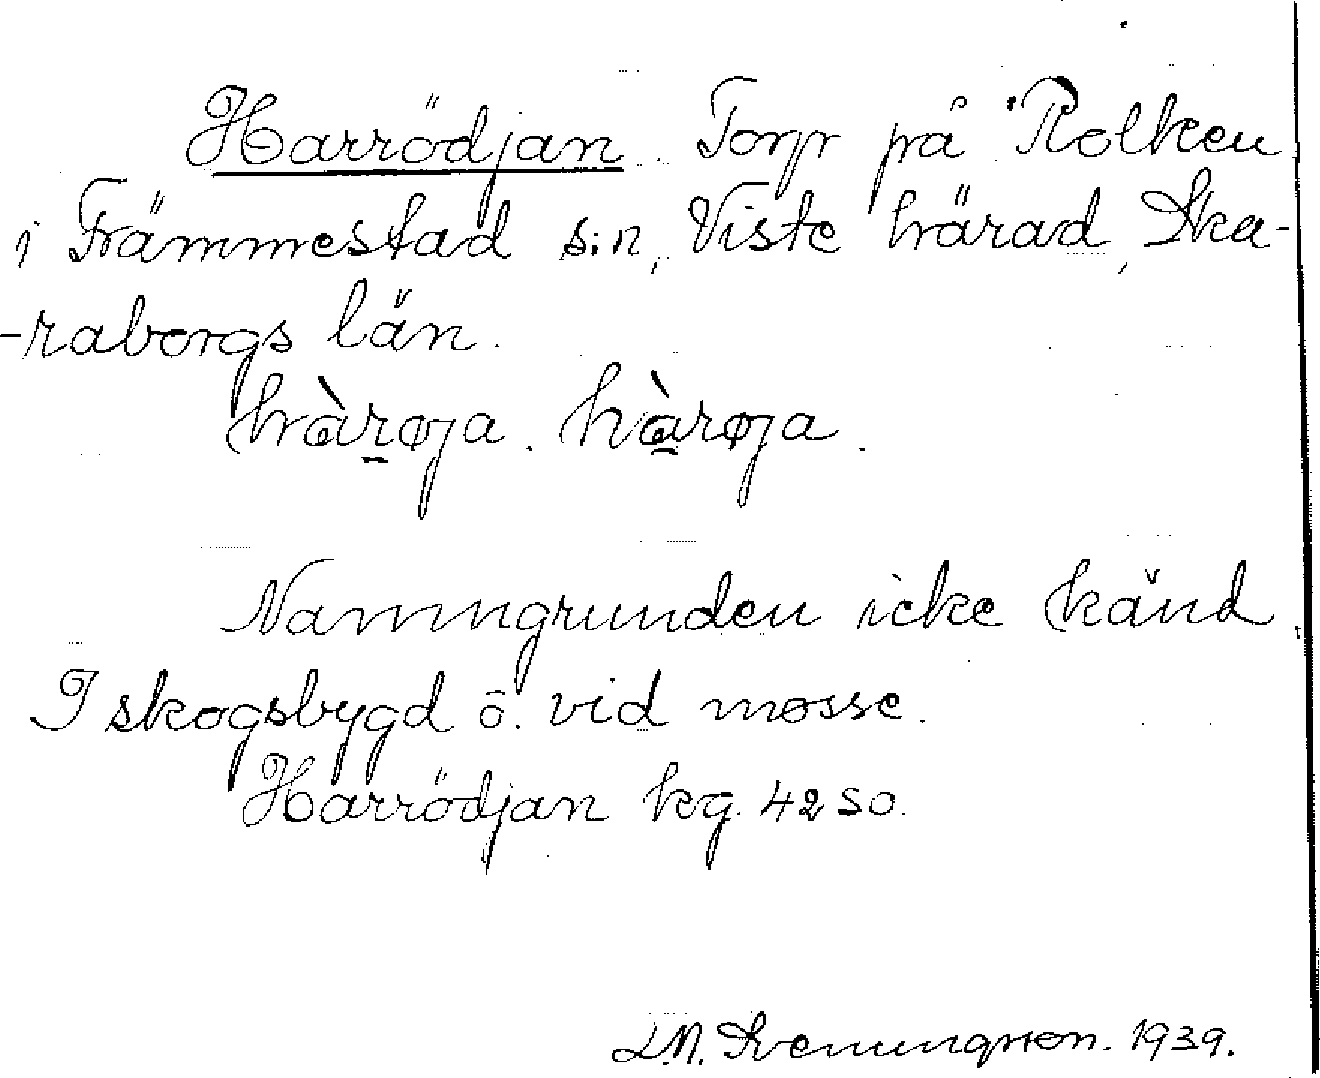 Harrödjan. Torp på Rolken
i Främmestad s:n, Viste härad, Ska-
-raborgs län.
hàrøja. hàrøja.
Namngrunden icke känd.
I skogsbygd o. vid mosse.
Harrödjan kg. 42 SO.
L.N. Sveningsson. 1939.